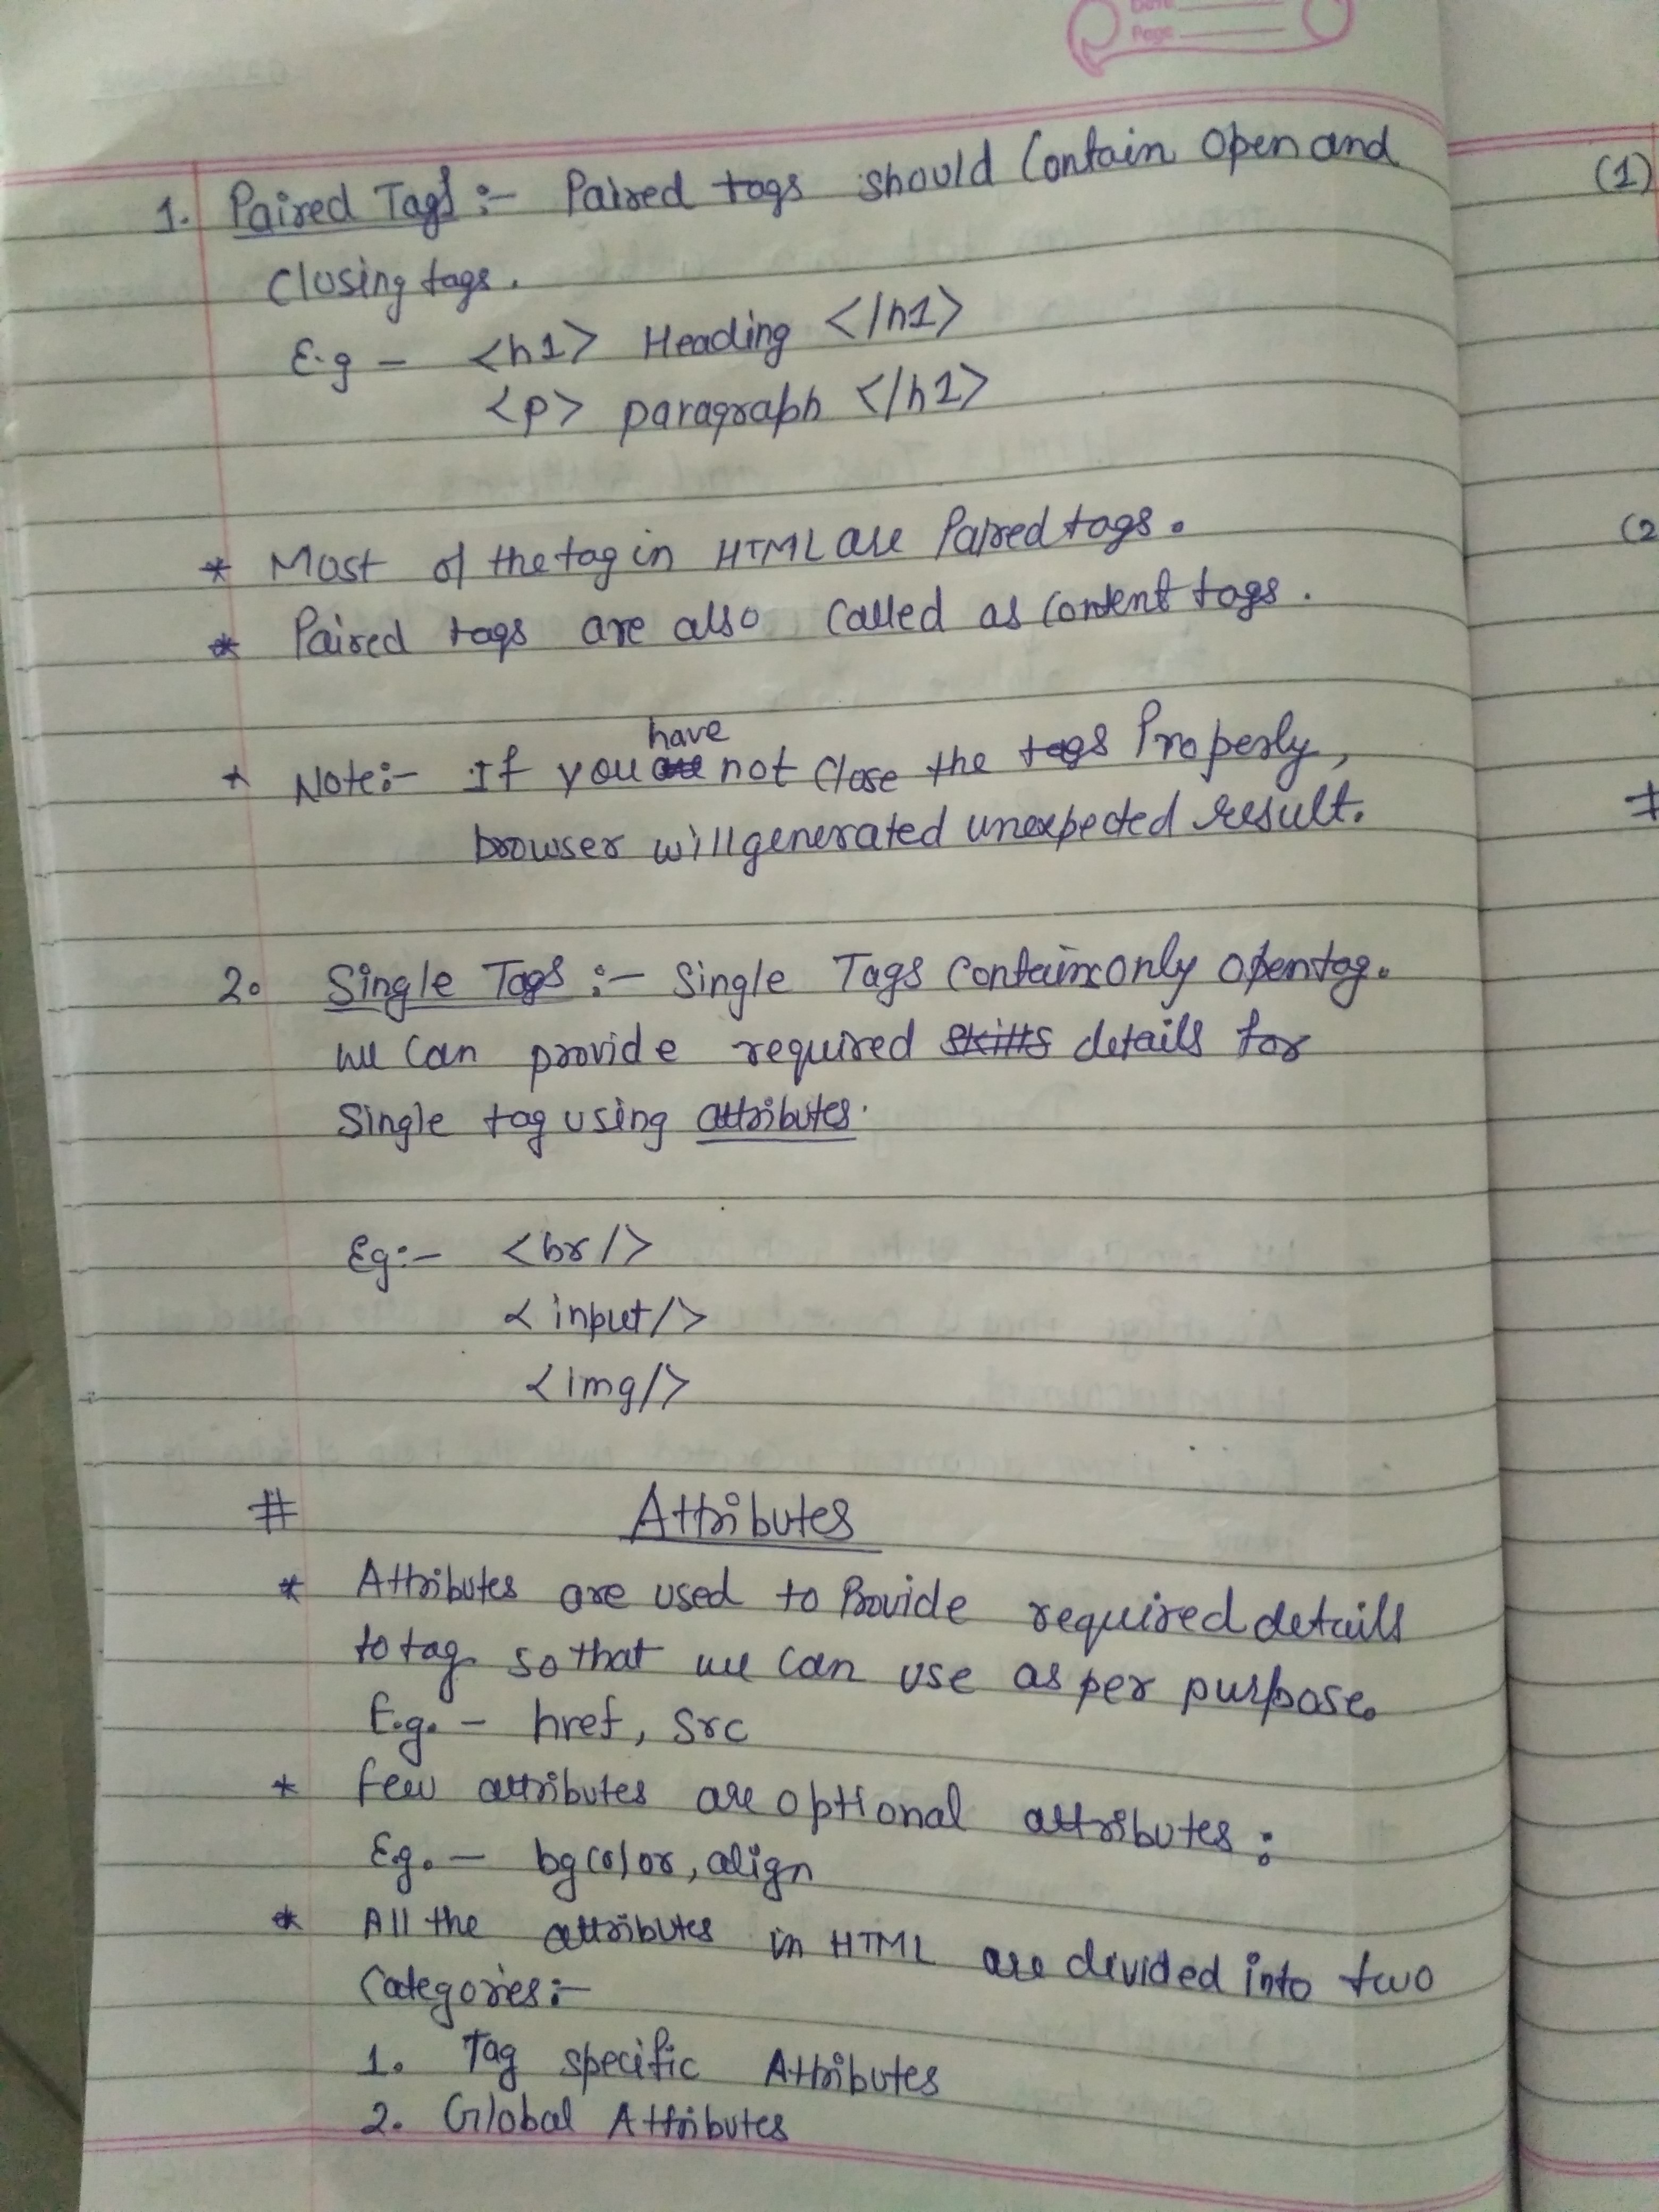 Date
Page
1. Paired Tags :- Paired tags should Contain Open and
Closing tags.
E.g - <h1> Heading </h1>
<p> paragraph </h1>
* Most of the tag in HTML are Paired tags.
* Paired tags are also Called as Content tags.
have
* Note:- If you are not Close the tags Properly,
browser will generated unexpected result.
2. Single Tags :- Single Tags Contain only open tag.
we Can provide required skills details for
Single tag using attributes.
Eg:- <br/>
<input/>
<img/>
# Attributes
* Attributes are used to Provide required details
to tag so that we can use as per purpose.
E.g. - href, src
* few attributes are optional attributes :
E.g. - bgcolor, align
* All the attributes in HTML are divided into two
Categories:-
1. Tag specific Attributes
2. Global Attributes
(1)
(2
#